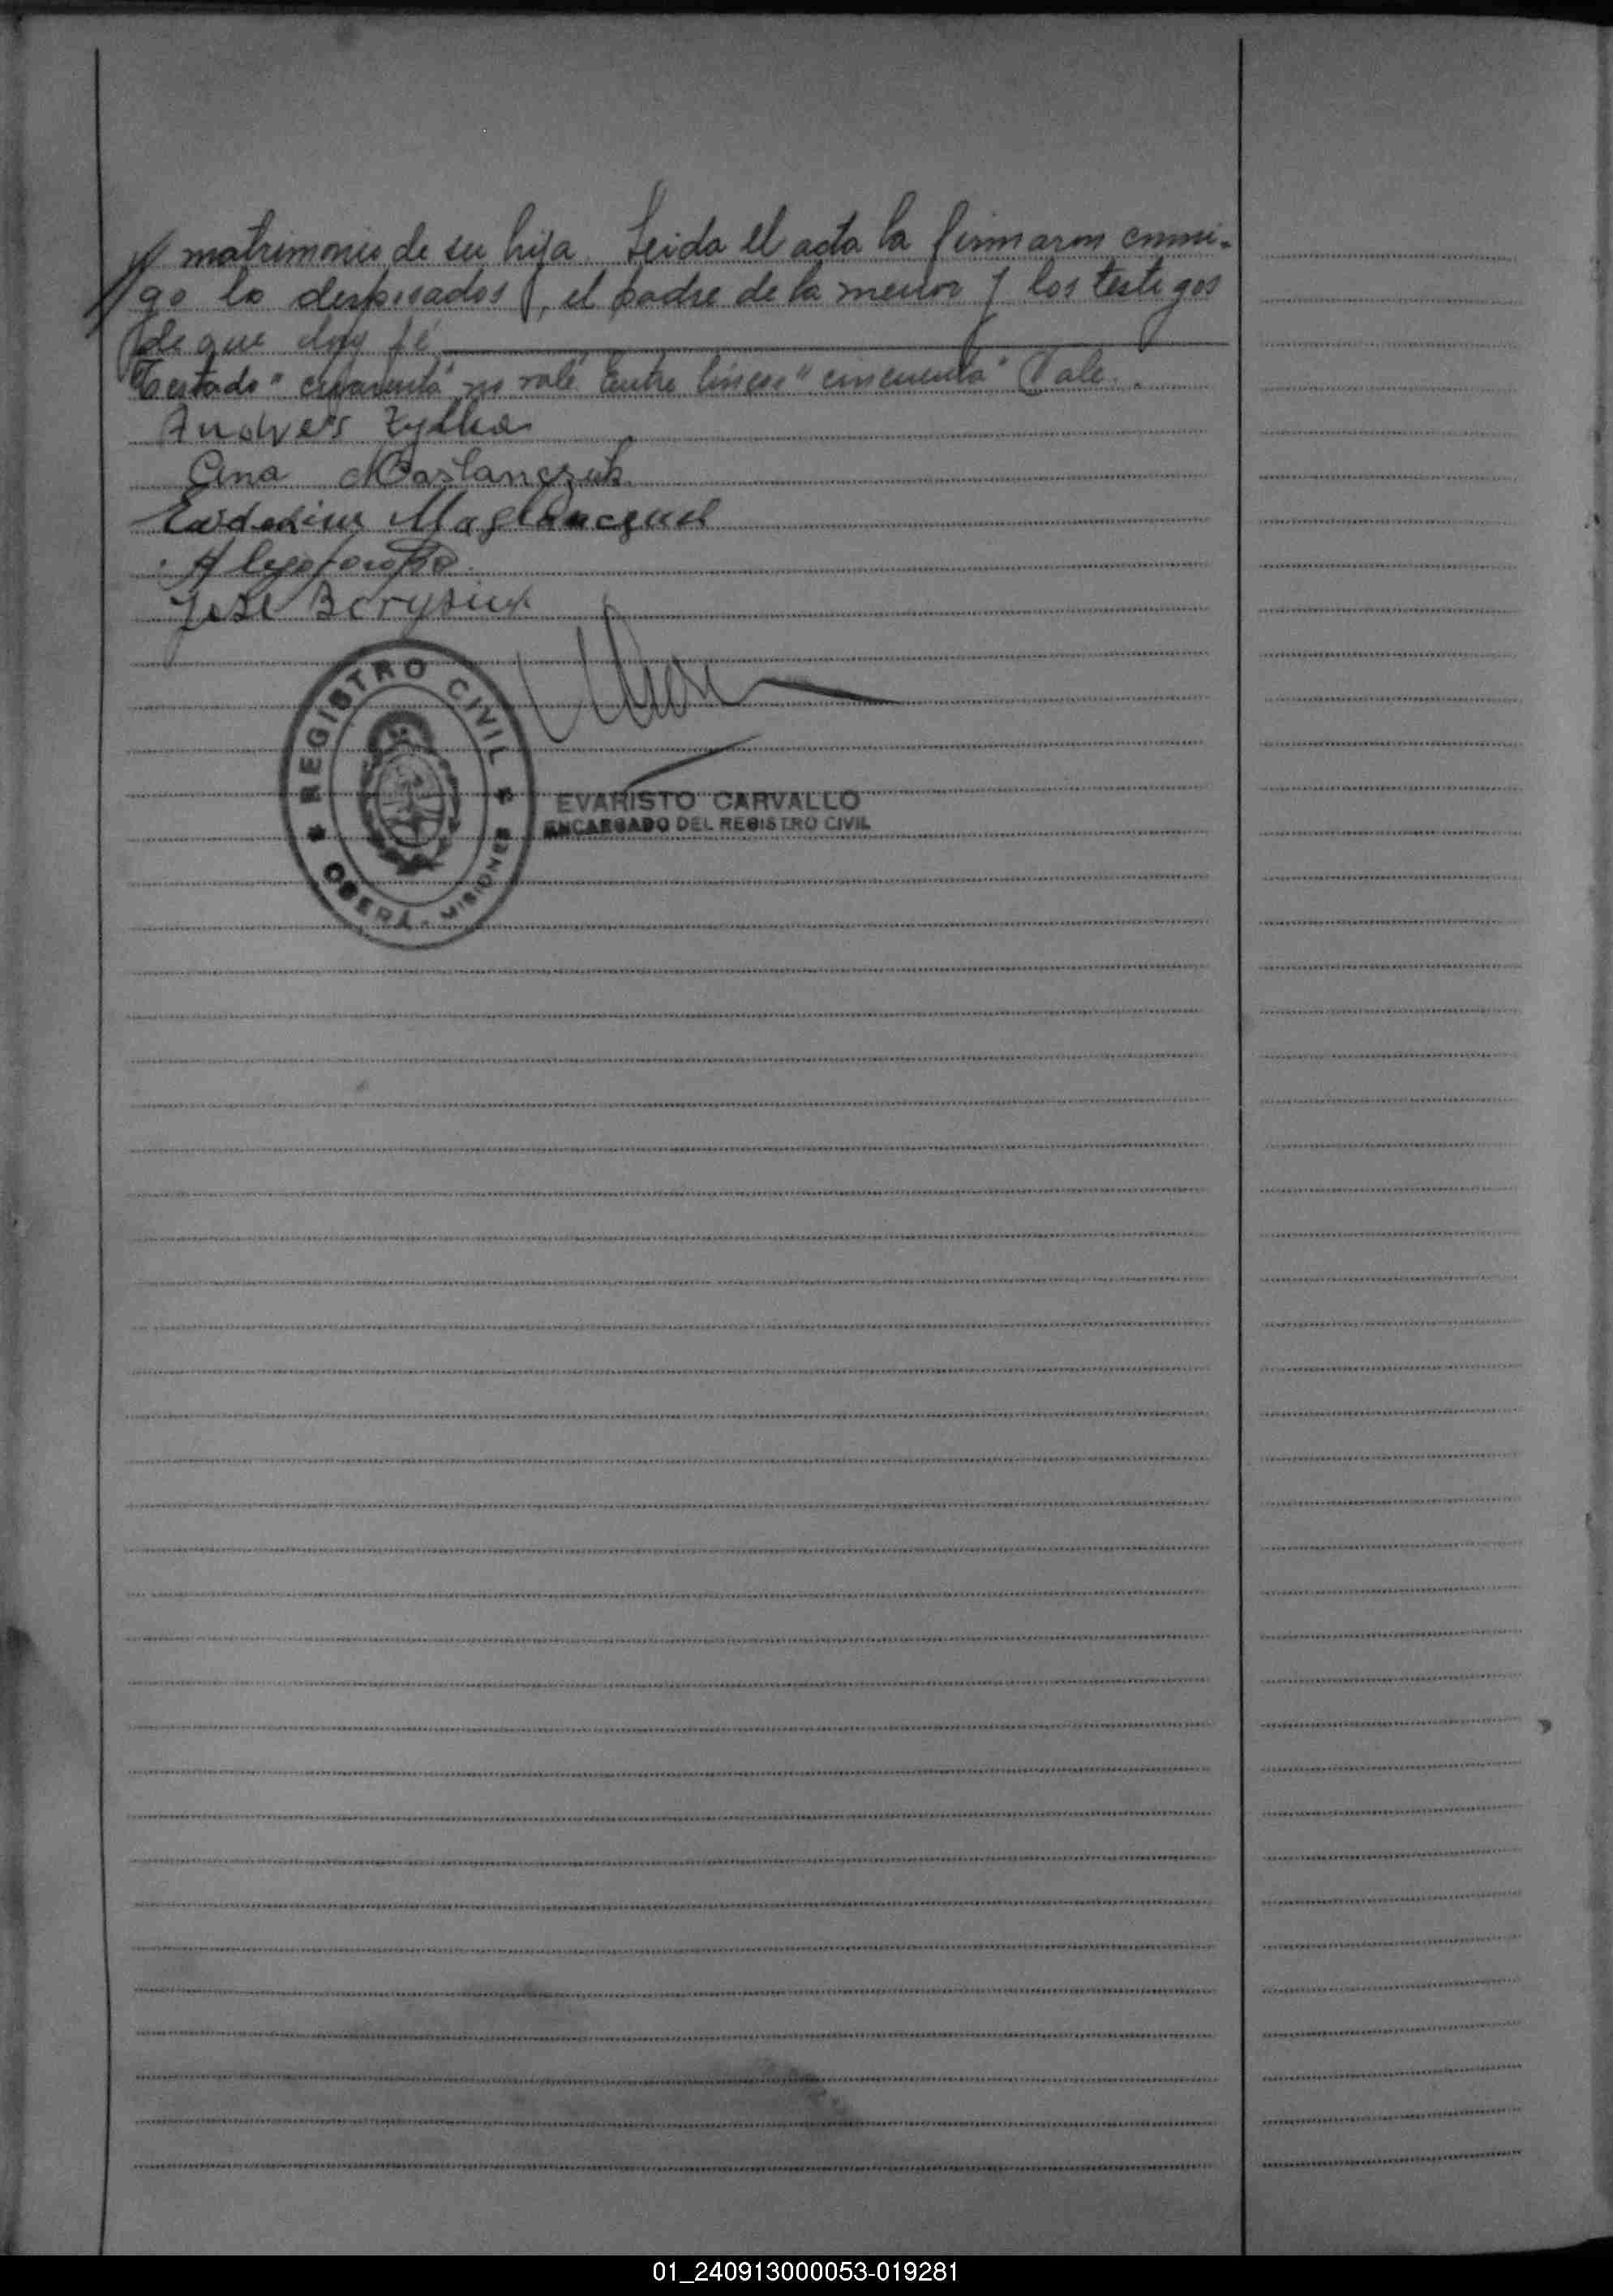 matrimonio de su hija. Leida el acta la firmaron conmi-
go lo desposados, el padre de la menor y los testigos
de que doy fé
Testado "cuarenta" no vale. Entre lineas "cincuenta" Vale.
Andres Zylka
Ana Maslanczuk
José Borysiuk
REGISTRO CIVIL
OBERÁ - MISIONES
EVARISTO CARVALLO
ENCARGADO DEL REGISTRO CIVIL
01_240913000053-019281